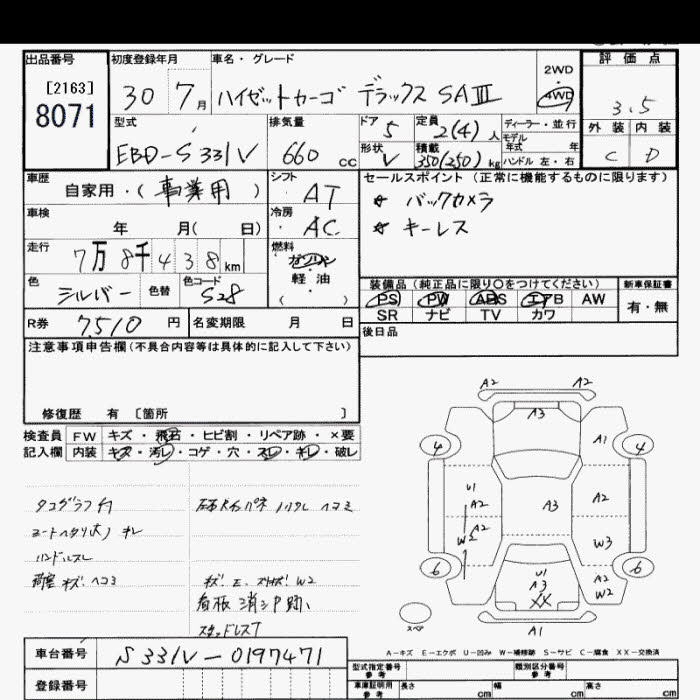 出品番号 初度登録年月 車名・グレード 2WD 評価点
[2163] 30 7月 ハイゼットカーゴ デラックス SAIII 4WD 3.5
8071
型式 排気量 ドア 5 定員 2(4)人 ディーラー・並行 外装 内装
モデル年式 年
EBD-S331V 660cc 形状 V 積載 350(250)kg ハンドル 左・右 C D
車歴 自家用・(事業用) シフト AT セールスポイント(正常に機能するものに限ります)
☆ バックカメラ
車検 年 月( 日) 冷房 AC
☆ キーレス
走行 7万8千438km 燃料 ガソリン
軽油
( )
色 シルバー 色替 色コード S28
装備品(純正品に限り〇をつけてください) 新車保証書
PS PW ABS エアB AW 有・無
SR ナビ TV カワ
R券 7,510円 名変期限 月 日 後日品
注意事項申告欄(不具合内容等は具体的に記入して下さい)
修復歴 有 〔箇所 〕
検査員 FW キズ・飛石・ヒビ割・リペア跡・×要
記入欄 内装 キズ・汚レ・コゲ・穴・スレ・キレ・破レ
タコグラフ付
ハンドルスレ
荷室 キズ.ヘコミ
看板消シ跡
スタッドレス7
A2 A2
A3
4 A1 4
U1 A2 A3 A2
A2
W2 W3
6 6
U1 A2
A3 W2
XX
スペア A1
A-キズ E-エクボ U-凹み W-補修跡 S-サビ C-腐食 XX-交換済
車台番号 S331V-0197471
型式指定番号 参考 類別区分番号 参考
登録番号 車庫証明用 参考 長さ cm 幅 cm 高さ cm